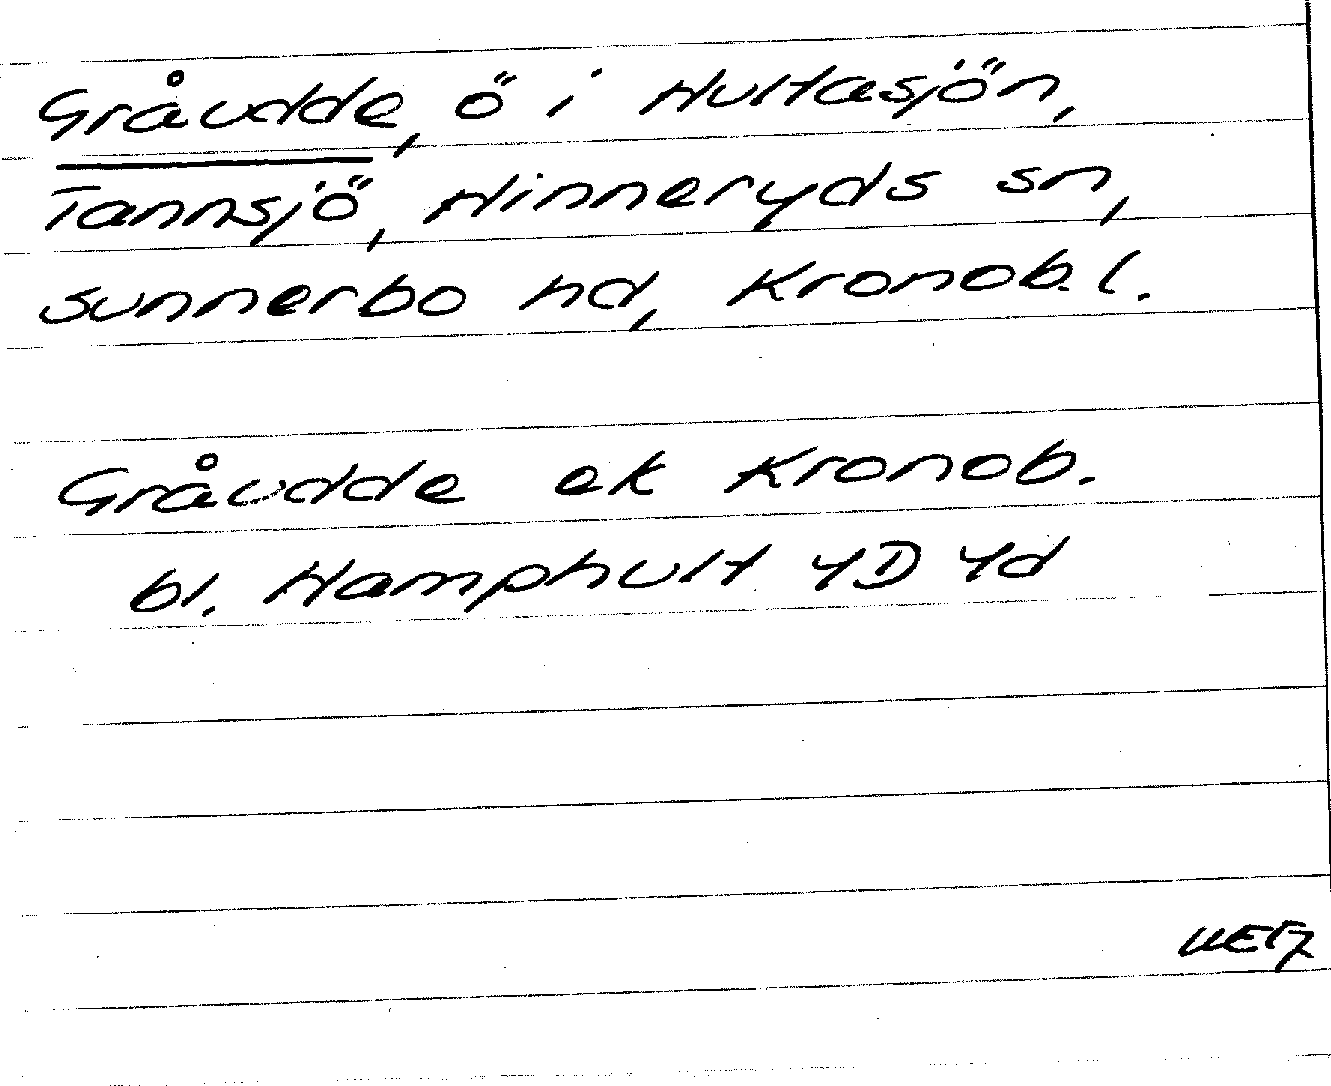 Gråudde, ö i Hultasjön,
Tannsjö, Hinneryds sn,
Sunnerbo hd, Kronob. l.
Gråudde ek Kronob.
bl. Hamphult 4D 4d